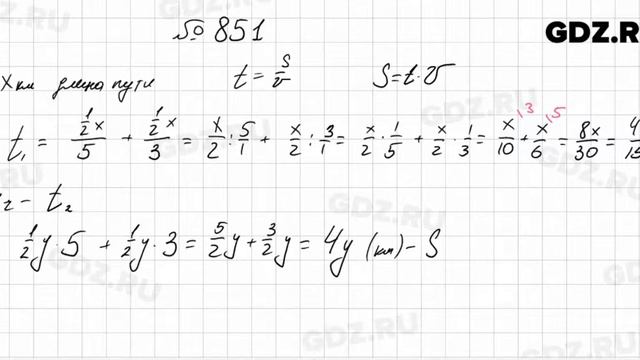 № 851
GDZ.R
X км длина пути t = S/v S = t · v
t₁ = (1/2 x)/5 + (1/2 x)/3 = x/2 : 5/1 + x/2 : 3/1 = x/2 · 1/5 + x/2 · 1/3 = x/10 \3 + x/6 \5 = 8x/30 = 4/15
- t₂
1/2 y · 5 + 1/2 y · 3 = 5/2 y + 3/2 y = 4y (км) - S
GDZ.RU
GDZ.RU
GDZ.RU
GDZ.RU
GDZ.RU